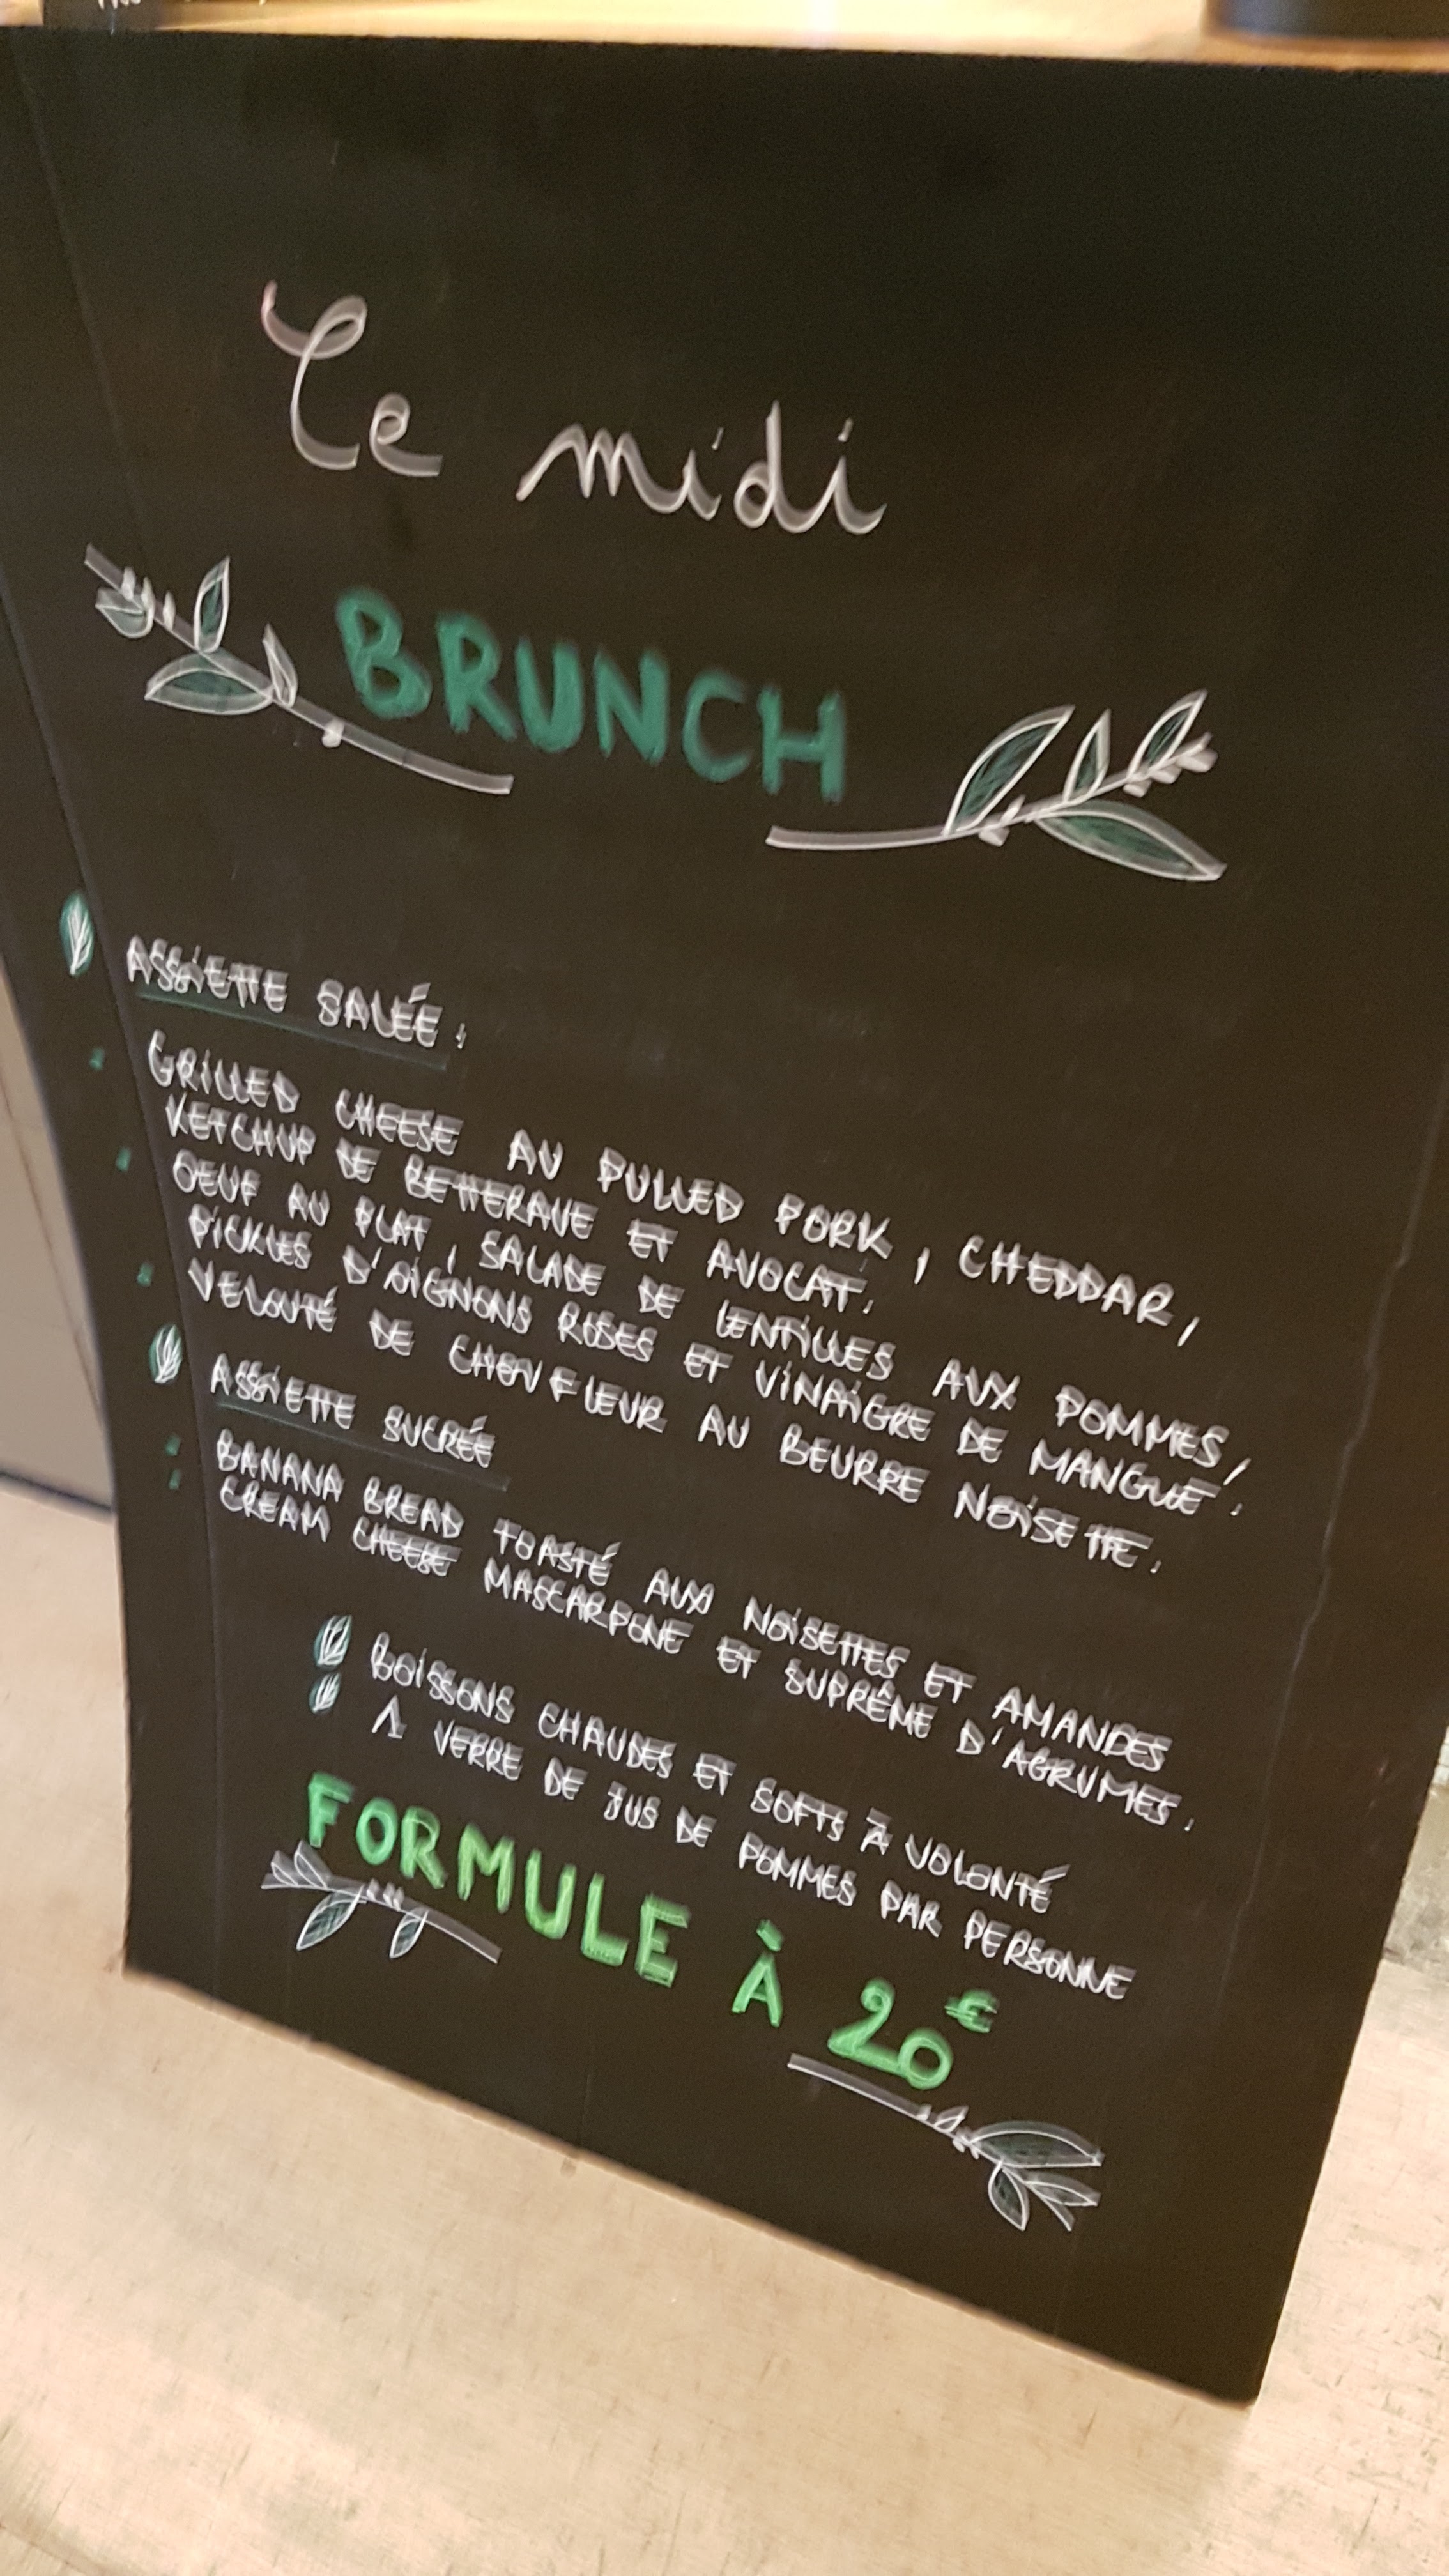 Ce midi
BRUNCH
ASSIETTE SALÉE :
GRILLED CHEESE AU PULLED PORK, CHEDDAR,
KETCHUP DE BETTERAVE ET AVOCAT.
OEUF AU PLAT, SALADE DE LENTILLES AUX POMMES,
PICKLES D'OIGNONS ROSES ET VINAIGRE DE MANGUE.
VELOUTÉ DE CHOU FLEUR AU BEURRE NOISETTE.
ASSIETTE SUCRÉE
BANANA BREAD TOASTÉ AUX NOISETTES ET AMANDES
CREAM CHEESE MASCARPONE ET SUPRÊME D'AGRUMES.
BOISSONS CHAUDES ET SOFTS À VOLONTÉ
1 VERRE DE JUS DE POMMES PAR PERSONNE
FORMULE À 20€